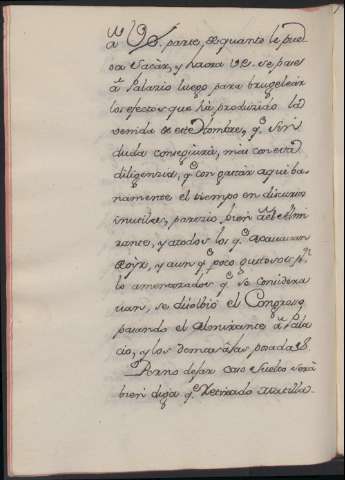 a VS. parte, è quanto le pue
da Sacàr, y haora VS. se pase
a Palazio luego para brugeleàr
los efectos que hà produzido la
venida de este Hombre, q.e sin
duda conseguirà, mas con esta
diligenzia, q.e con gastàr aqui ba
namente el tiempo en discursos
inutiles, parezio bien al Almi
rante, y atodos los q.e
oyr, y aun q.e poco gustosos p.r
lo amenazados q.e se considera
uan, se disolbiò el Congreso
pasando el Almirante a Pala
cio, y los demas à sus posadas.
Pero no dejar caso Suelto serà
bien diga q.e Retirado Matilla